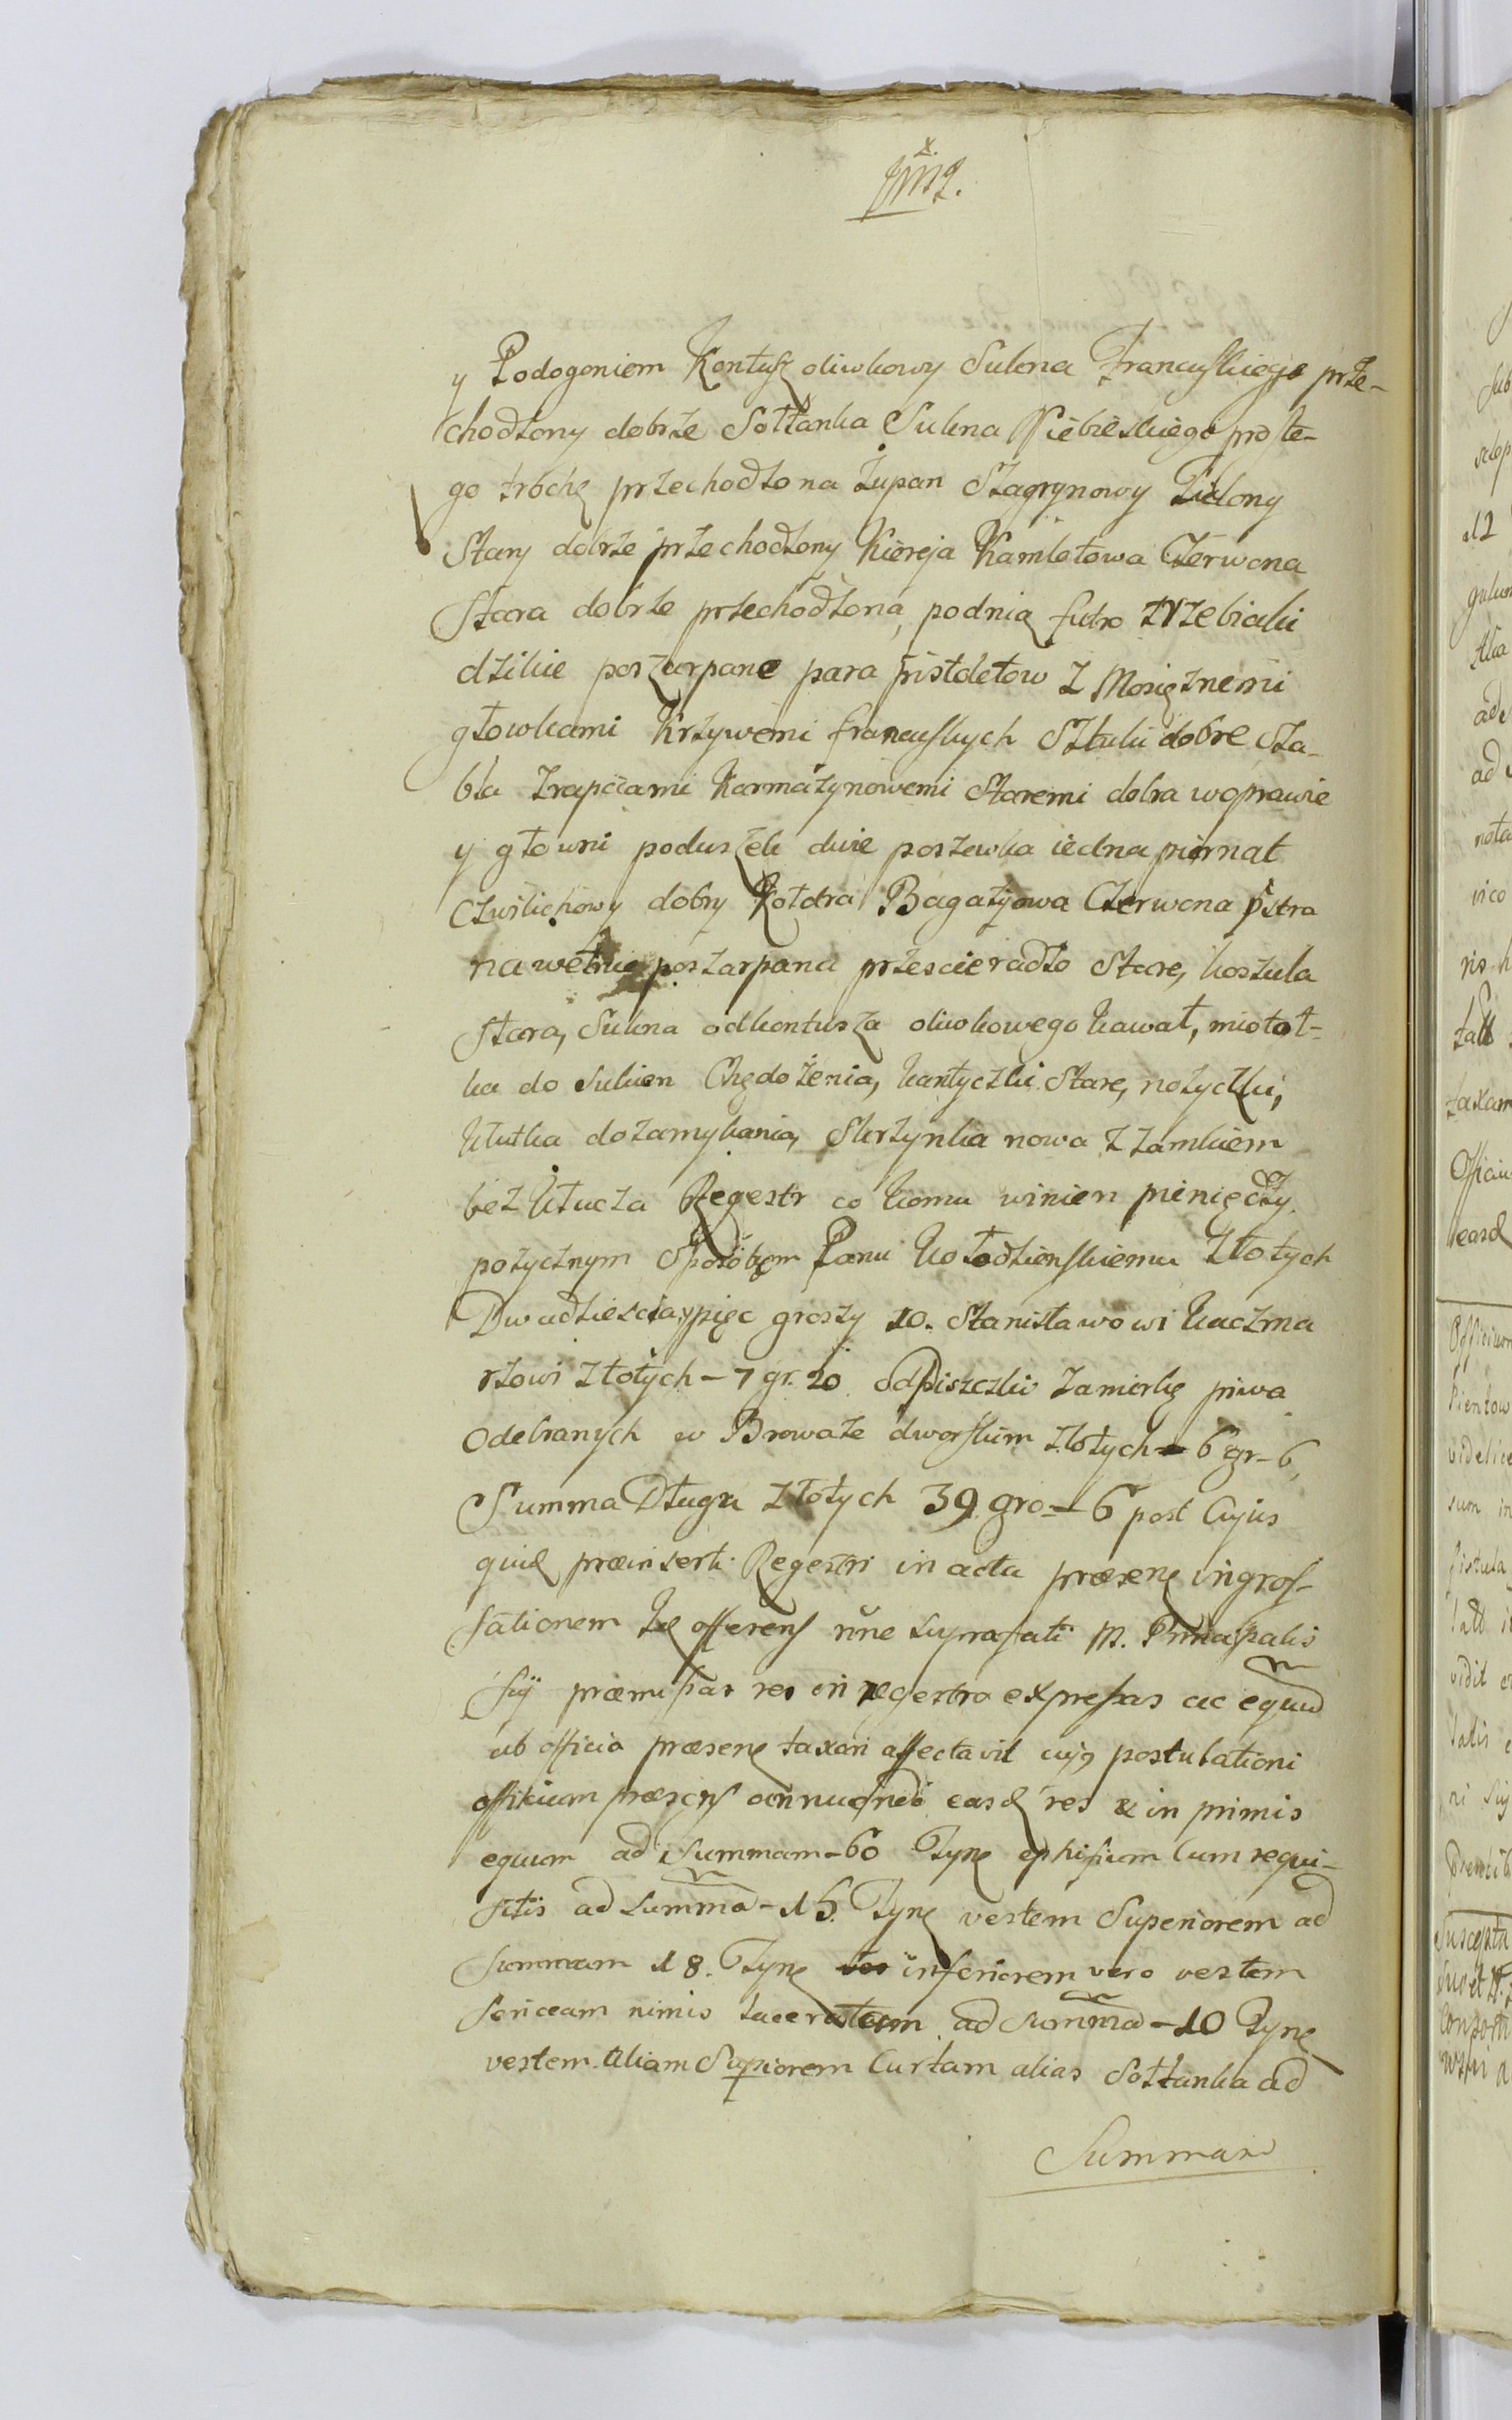 y Podogoniem Kontusz oliwkowy Sukna Francuskiego prze-
chodzony dobrze Sołtanka Sukna Niebieskiego proste-
go trochę przechodzona żupan Szagrynowy Zielony
Stary dobrze przechodzony Kiereja Kamlotowa Czerwona
Stara dobrze przechodzona, podnią futro zrzebiaki
dzikie poszarpane para pistoletow z Mosiężnemi
głowkami Krzywemi francuskych Sztuki dobre Sza-
bla zrapciami Karmazynowemi Staremi dobra woprawie
y głowni poduszek dwie poszewka iedna piernat
Czwilichowy dobry Kołdra Bagazyowa Czerwona pstra
na wełnie poszarpana przescieradło Stare, koszula
Stara, Sukna odkontusza oliwkowego kawał, miotoł-
ka do Sukien Chędożenia, kantyczki Stare, nozyczki,
kłutka dozamykania, Skrzynka nowa z zamkiem
bez klucza Regestr co komu winien pieniędzy
pozycznym Sposobem Panu Kołodzienskiemu Złotych
Dwadziescia y pięc groszy 10. Stanisławowi kaczma
rzowi złotych - 7 gr. 20 Odpiszczki zamiorkę piwa
Odebranych w Browaze dworskim złotych - 6 gr - 6,
Summa Długu złotych 39 gro - 6 post Cujus
quid praeinserti Regestri in acta praesene ingros-
sationem Ize offerens nne supra fati M. Principalis
sui praemissas res in regestro expressas ac equum
ab officio praesene taxari affectavit cujg postulationi
officium praesens annuendo easd res & in primis
equum ad Summam - 60 Tyne ephipium Cum requi-
sitis ad Summa - 15. Tyne vestem Superiorem ad
Summam 18. Tyne inferiorem vero vestem
sericeam nimis laceratam ad Summa - 10 Tyne
vestem aliam Supiorem Curtam alias Sołtanka ad
Summam